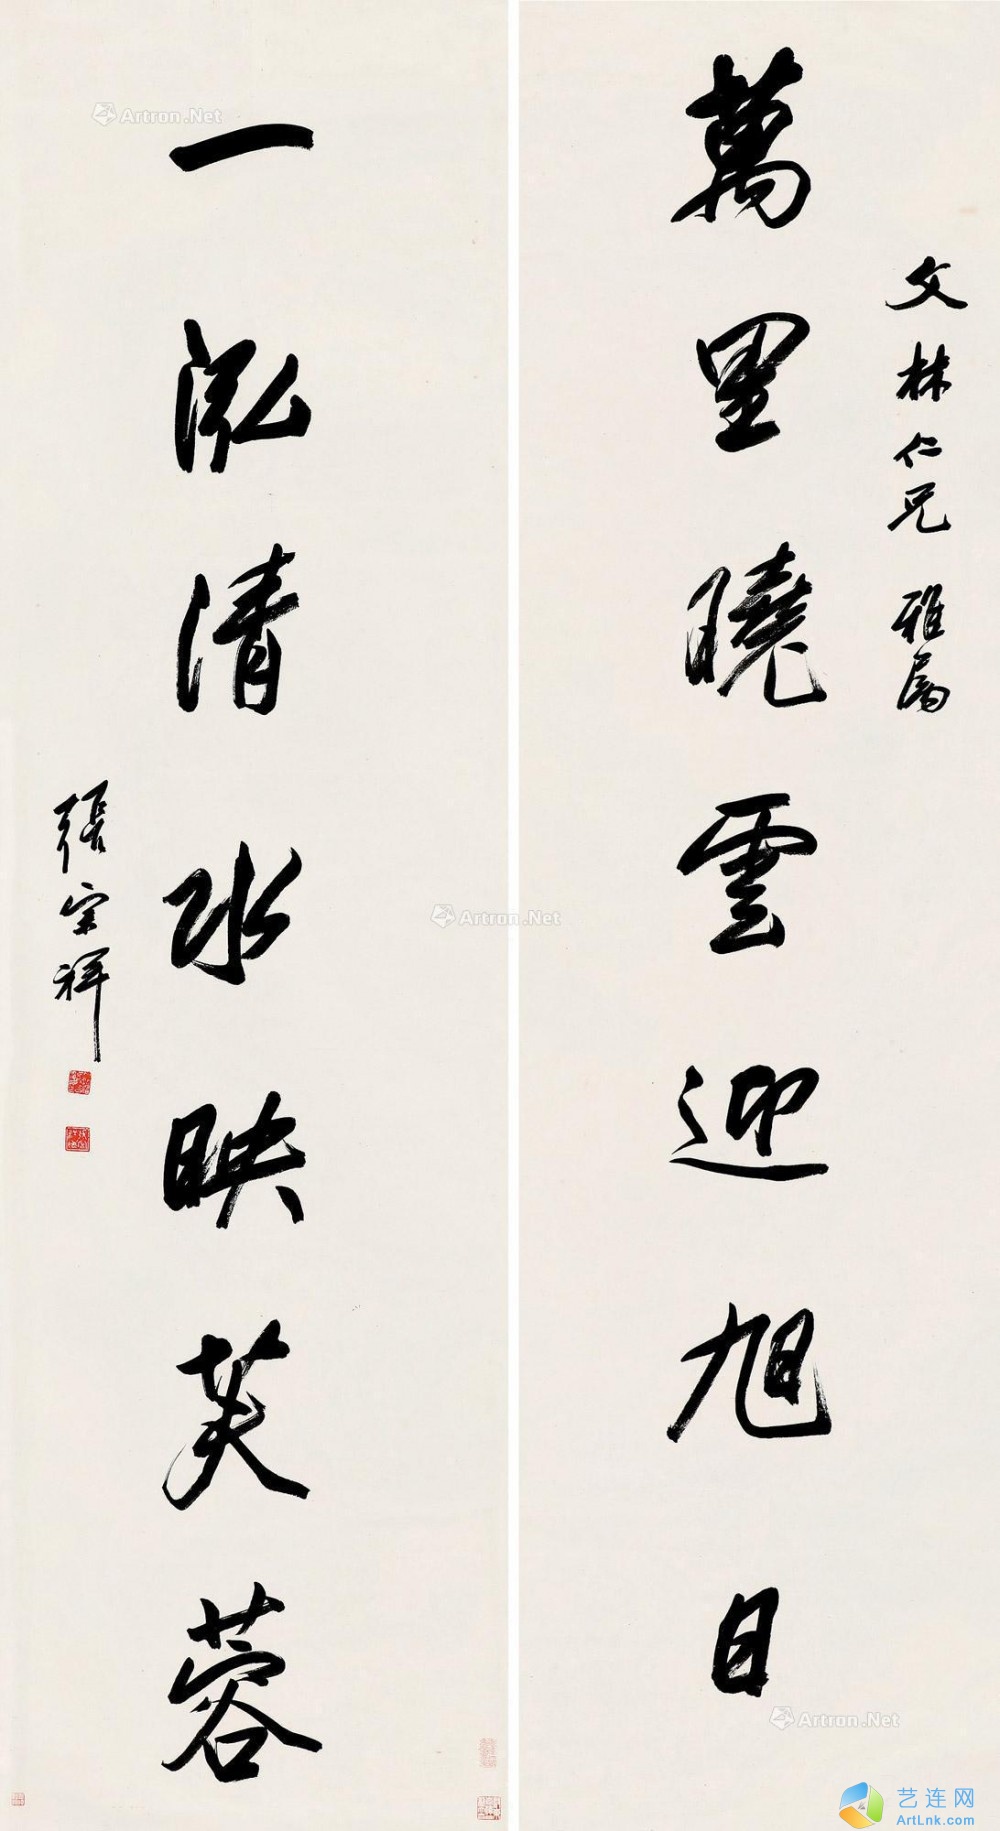 文林仁兄 雅属
萬里曉雲迎旭日
一泓清水映芙蓉
張宗祥
Artron.Net
Artron.Net
Artron.Net
艺连网
ArtLnk.com